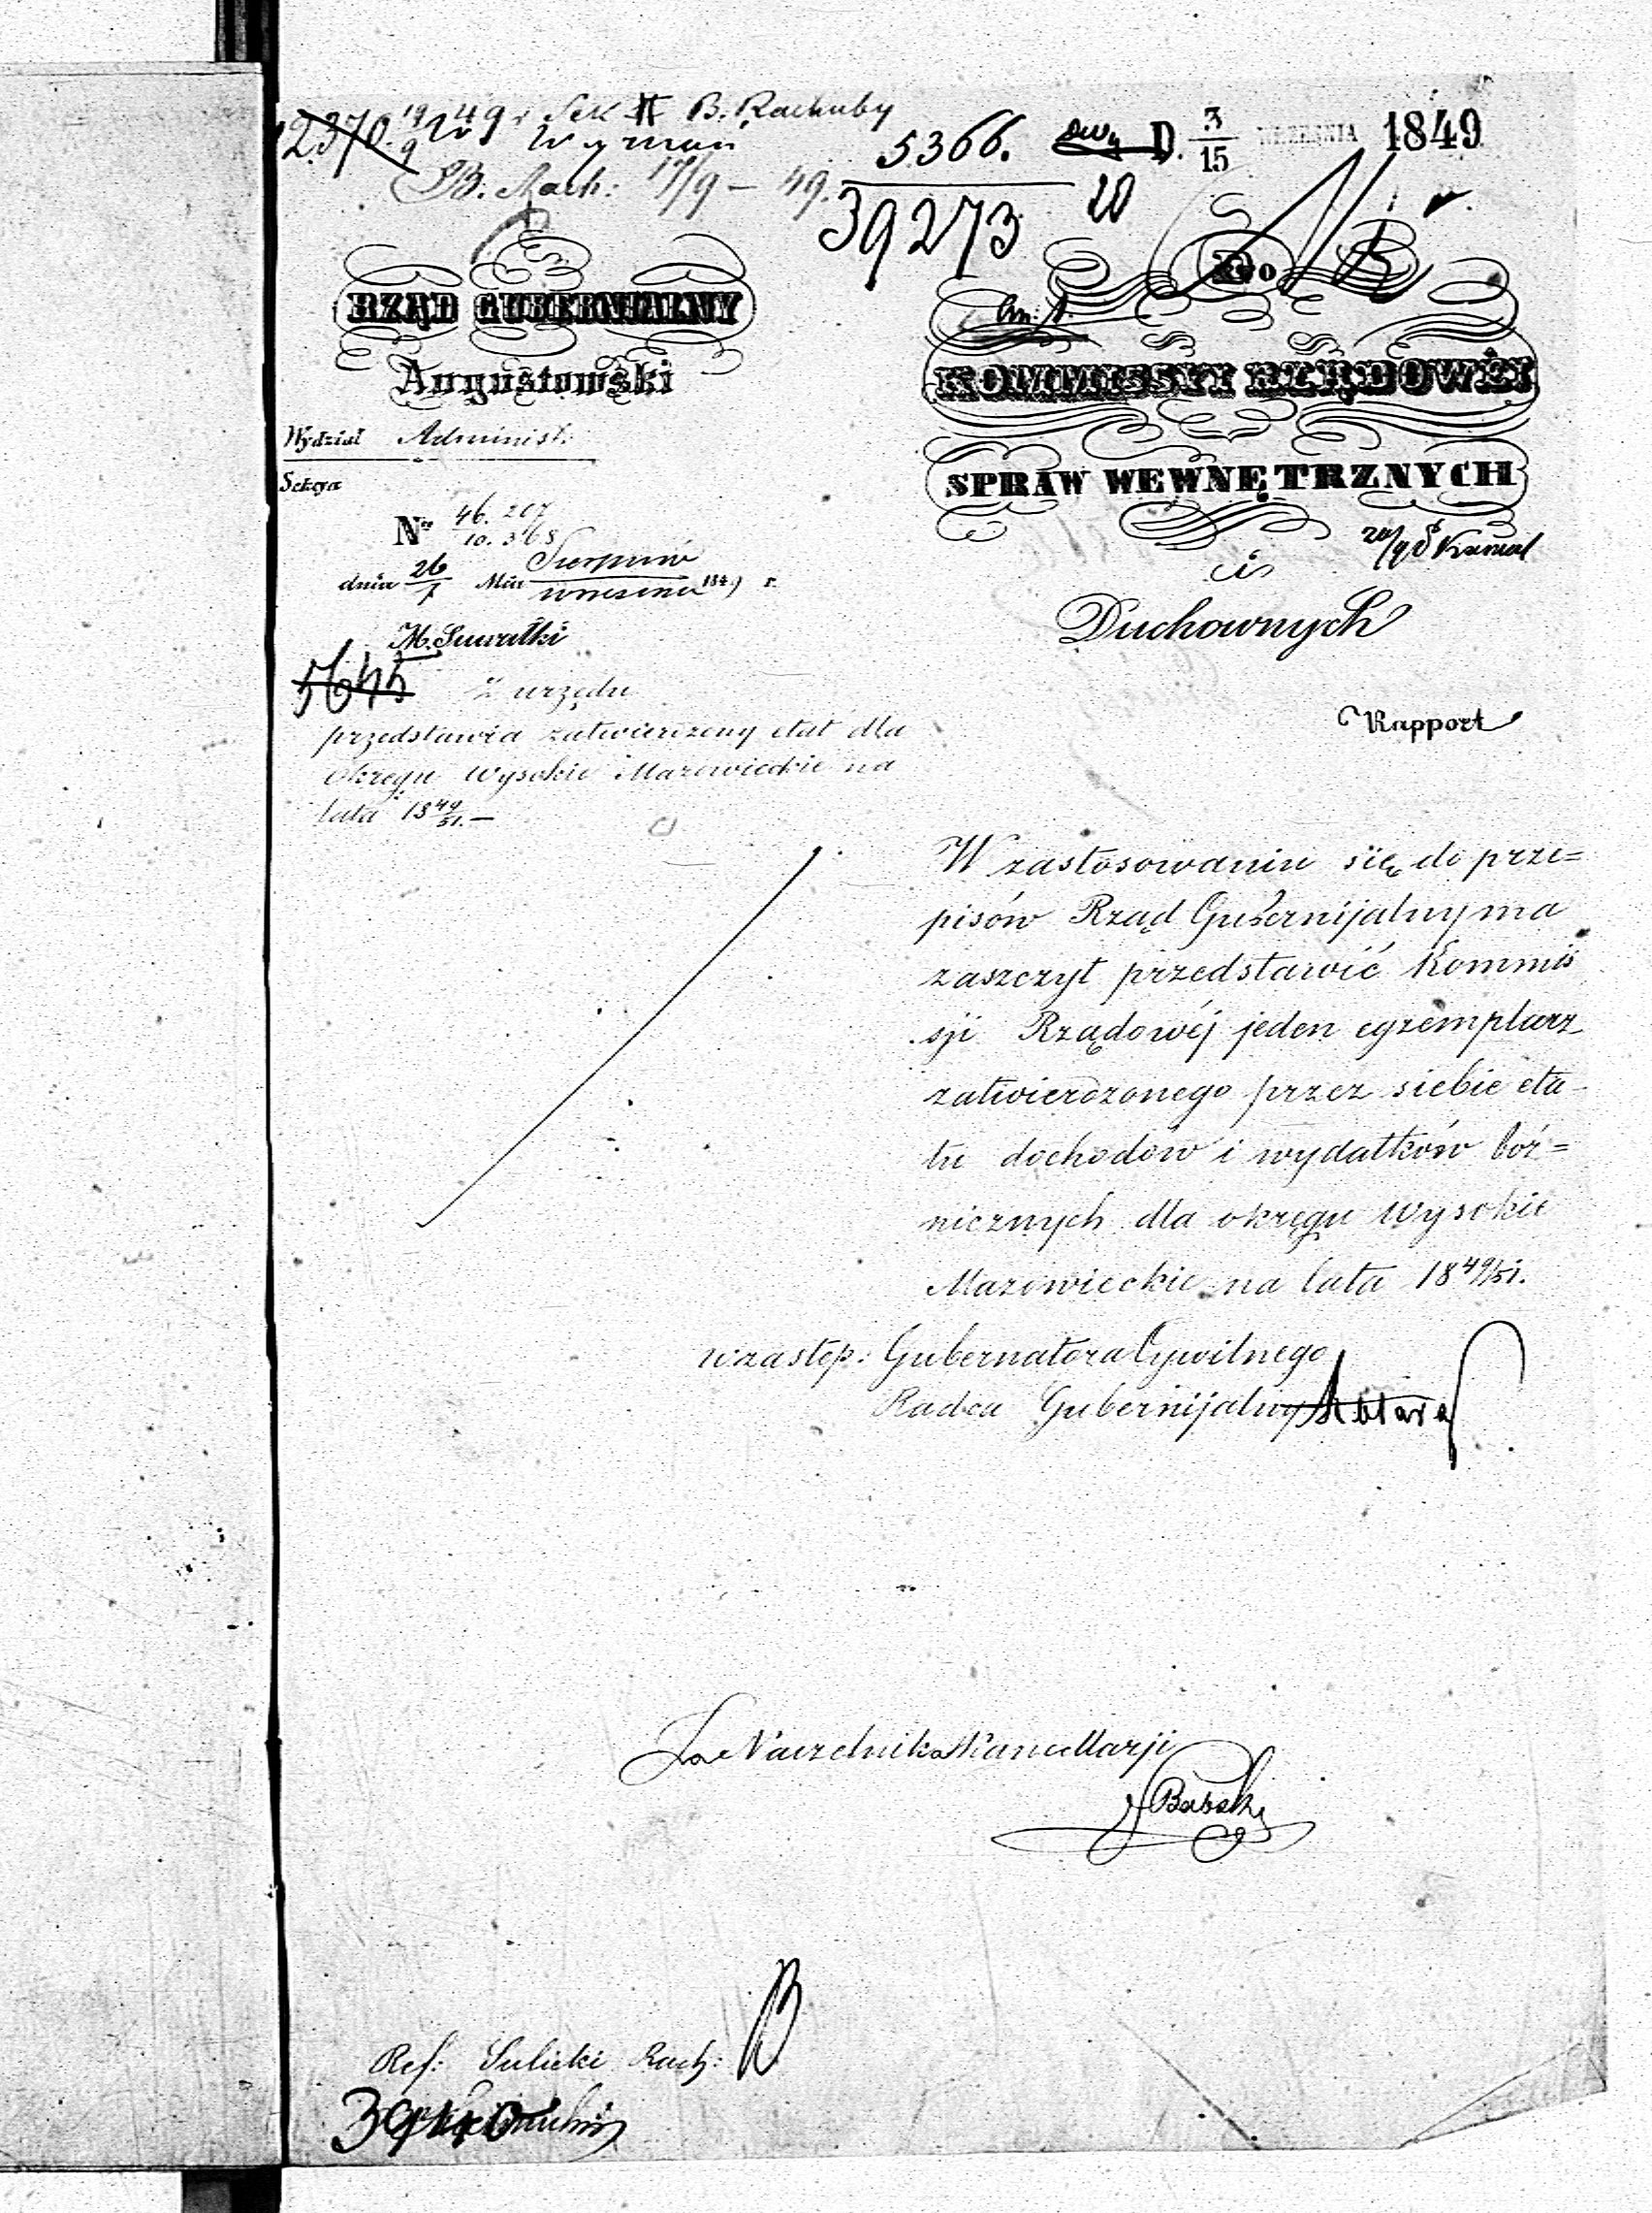 12370. 19/9 49 r Sek II B. Rachuby
B. Rach: 17/9 – 49.
5366.
39273
20
D. 3/15 WRZEŚNIA 1849
RZĄD GUBERNIALNY
Augustowski
Wydział Administ:
Sekcya
No 46.207
10.368
dnia 26/7 Mca Sierpnia
Września 1849 r.
M. Suwałki
5645
Z urzędu
przedstawia zatwierdzony etat dla
okręgu Wysokie Mazowieckie na
lata 1849/51.–
Do
KOMMISSYI RZĄDOWÉJ
SPRAW WEWNĘTRZNYCH
i
Duchownych
Rapport
W zastosowaniu się do prze=
pisów Rząd Gubernijalny ma
zaszczyt przedstawić Kommis
sji Rządowéj jeden egzemplarz
zatwierdzonego przez siebie eta-
tu dochodów i wydatków boż=
nicznych dla okręgu Wysokie
Mazowieckie na lata 1849/51.
w zastęp: Gubernatora Cywilnego
Radca Gubernijalny
Za Naczelnika Kancellarji
Ref: Sulicki Rach: